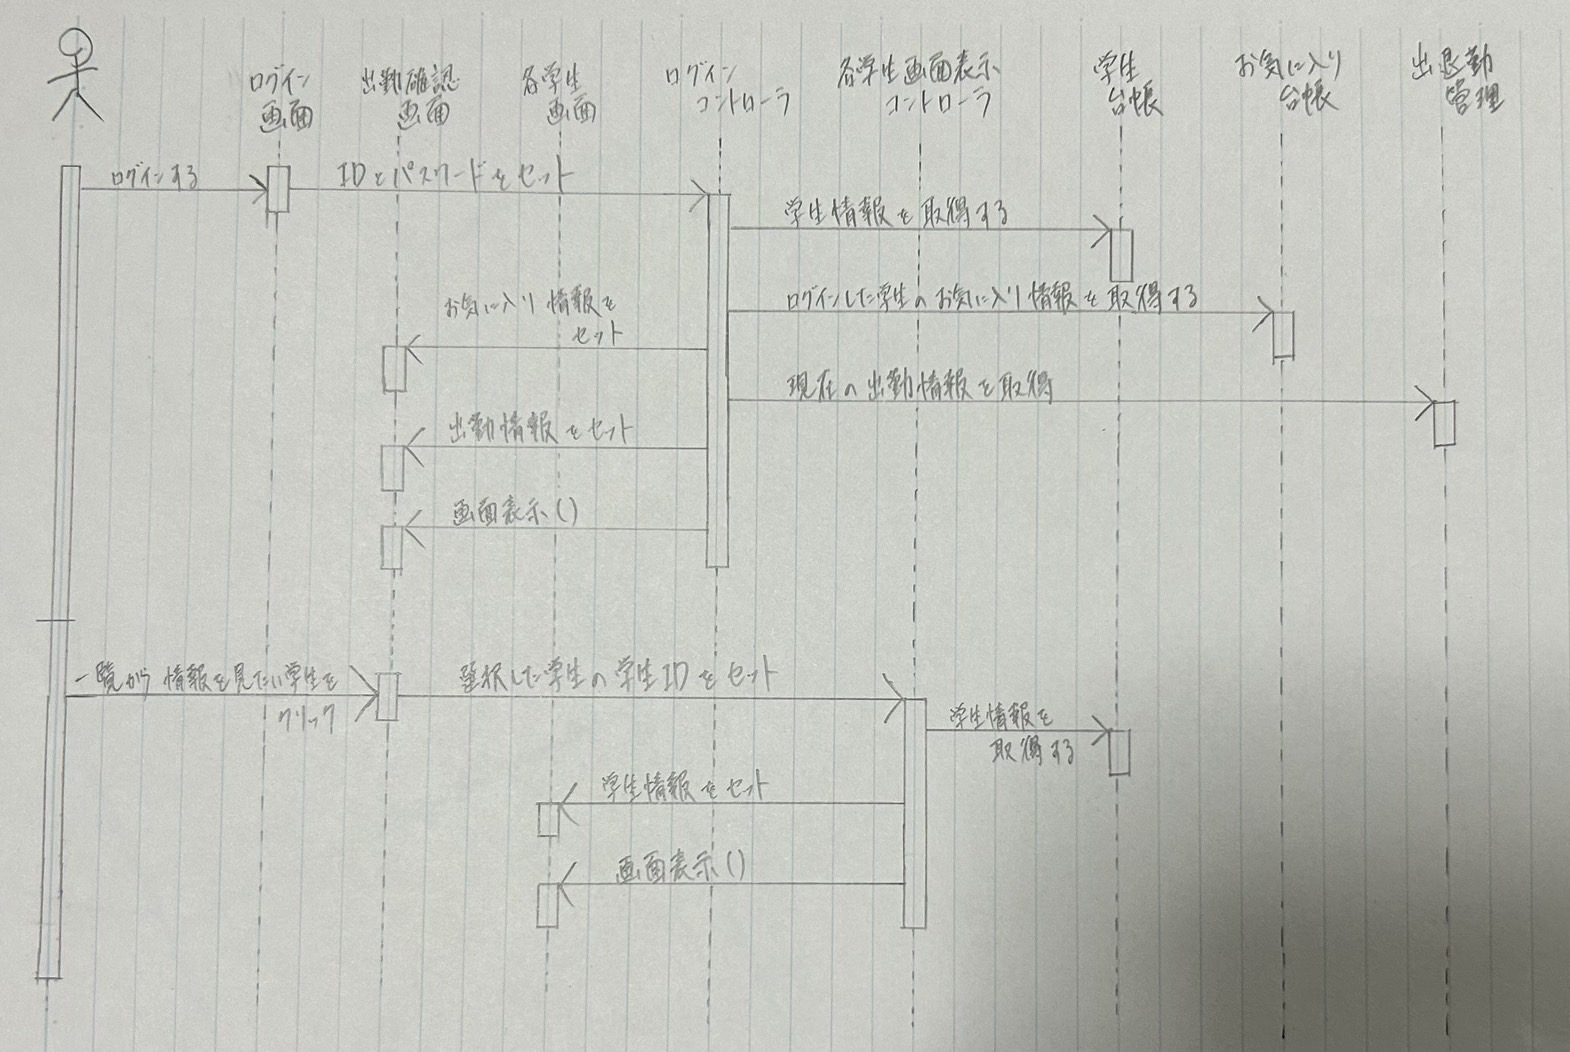 ログイン
画面
出勤確認
画面
各学生
画面
ログイン
コントローラ
各学生画面表示
コントローラ
学生
台帳
お気に入り
台帳
出退勤
管理
ログインする
IDとパスワードをセット
学生情報を取得する
ログインした学生のお気に入り情報を取得する
お気に入り情報を
セット
現在の出勤情報を取得
出勤情報をセット
画面表示()
一覧から情報を見たい学生を
クリック
選択した学生の学生IDをセット
学生情報を
取得する
学生情報をセット
画面表示()